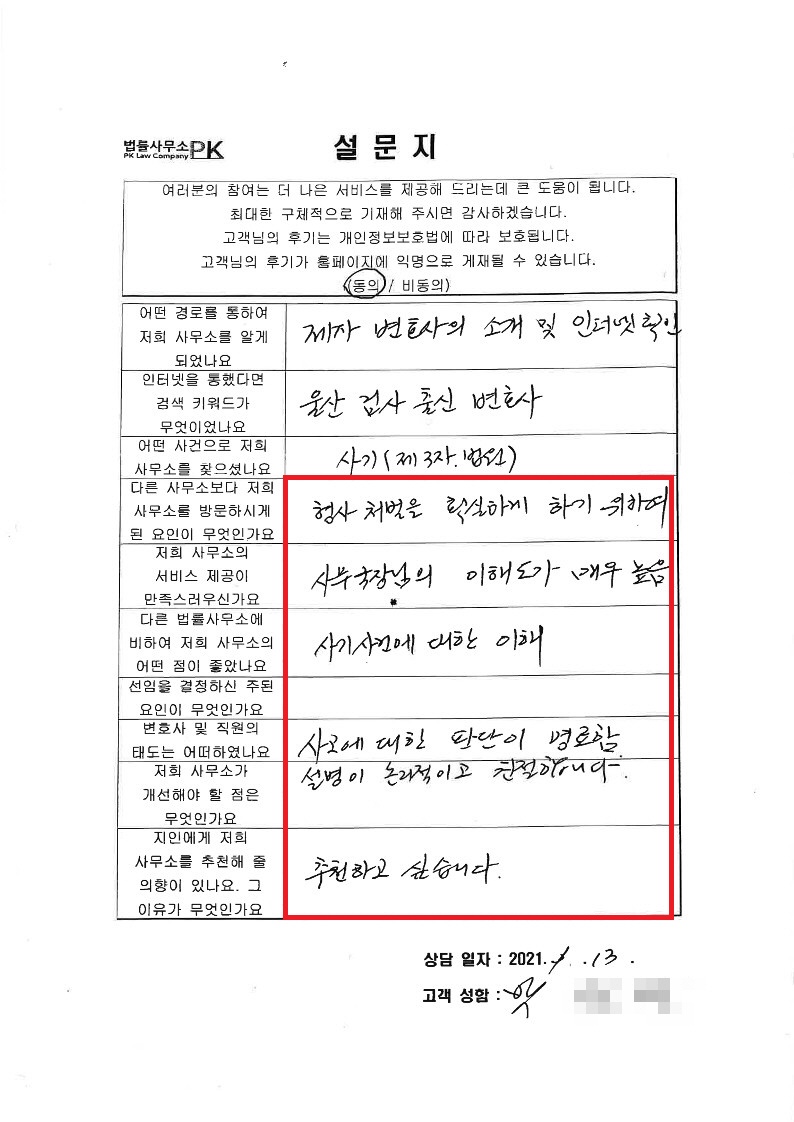 법률사무소PK
PK Law Company
설문지
여러분의 참여는 더 나은 서비스를 제공해 드리는데 큰 도움이 됩니다.
최대한 구체적으로 기재해 주시면 감사하겠습니다.
고객님의 후기는 개인정보보호법에 따라 보호됩니다.
고객님의 후기가 홈페이지에 익명으로 게재될 수 있습니다.
(동의 / 비동의)
어떤 경로를 통하여
저희 사무소를 알게
되었나요
제자 변호사의 소개 및 인터넷 확인
인터넷을 통했다면
검색 키워드가
무엇이었나요
울산 검사 출신 변호사
어떤 사건으로 저희
사무소를 찾으셨나요
사기(제3자. 법원)
다른 사무소보다 저희
사무소를 방문하시게
된 요인이 무엇인가요
형사 처벌을 확실하게 하기 위하여
저희 사무소의
서비스 제공이
만족스러우신가요
사무국장님의 이해도가 매우 높음
다른 법률사무소에
비하여 저희 사무소의
어떤 점이 좋았나요
사기사건에 대한 이해
선임을 결정하신 주된
요인이 무엇인가요
변호사 및 직원의
태도는 어떠하였나요
사고에 대한 판단이 명료함
설명이 논리적이고 친절합니다.
저희 사무소가
개선해야 할 점은
무엇인가요
지인에게 저희
사무소를 추천해 줄
의향이 있나요. 그
이유가 무엇인가요
추천하고 싶습니다.
상담 일자 : 2021. . 13 .
고객 성함 :